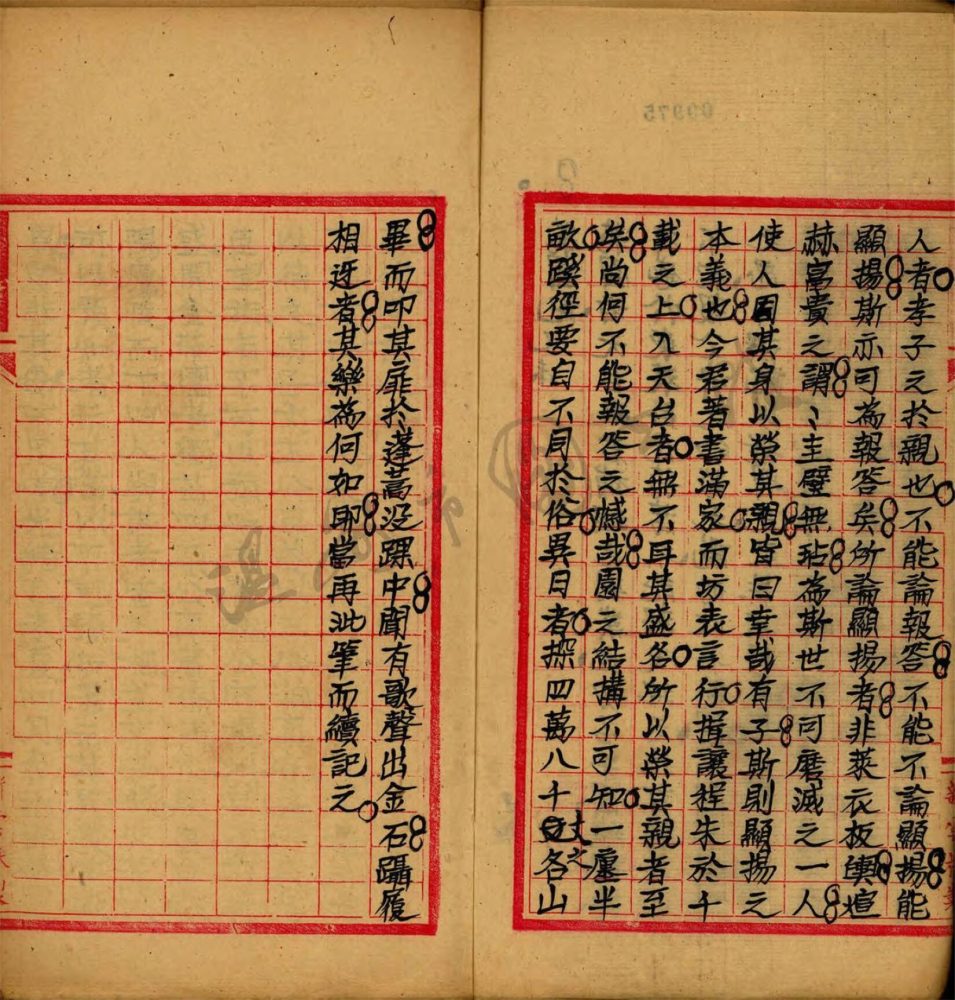 人者孝子之於親也不能論報答不能不論顯揚能
顯揚斯亦可為報答矣所論顯揚者非萊衣板輿煊
赫富貴之謂〻主璧無玷為斯世不可磨滅之一人
使人因其身以榮其親皆曰幸哉有子斯則顯揚之
本義也今君著書滿家而坊表言行揖讓程朱於千
載之上入天台者無不耳其盛名所以榮其親者至
矣尚何不能報答之憾哉園之結搆不可知一廛半
畝蹊徑要自不同於俗異日者探四萬八千丈之名山
畢而叩其扉於蓬蒿没踝中聞有歌聲出金石躡履
相迓者其樂為何如耶當再泚筆而續記之
00975